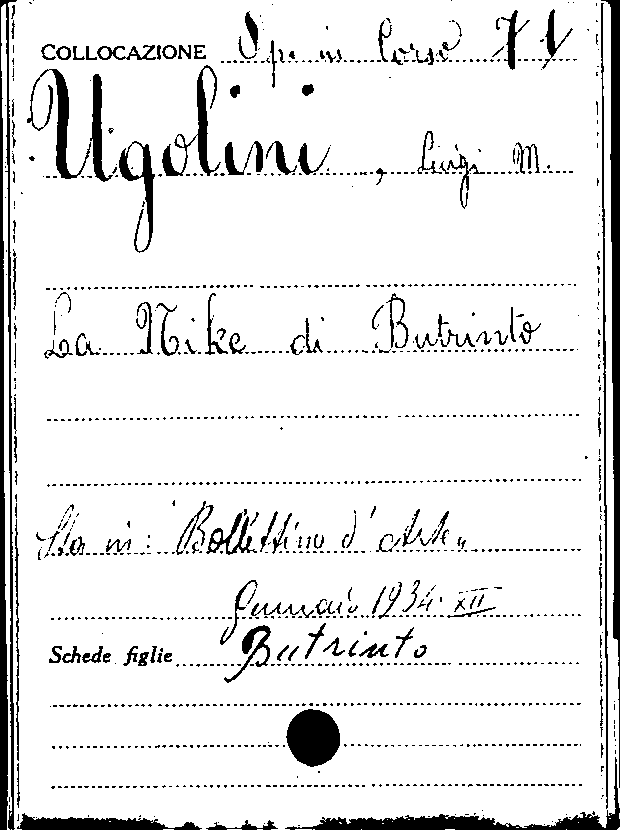 COLLOCAZIONE Op. in Corso 71
Ugolini, Luigi M.
La Nike di Butrinto
Sta in: "Bollettino d'Arte„
Gennaio 1934 XII
Schede figlie Butrinto